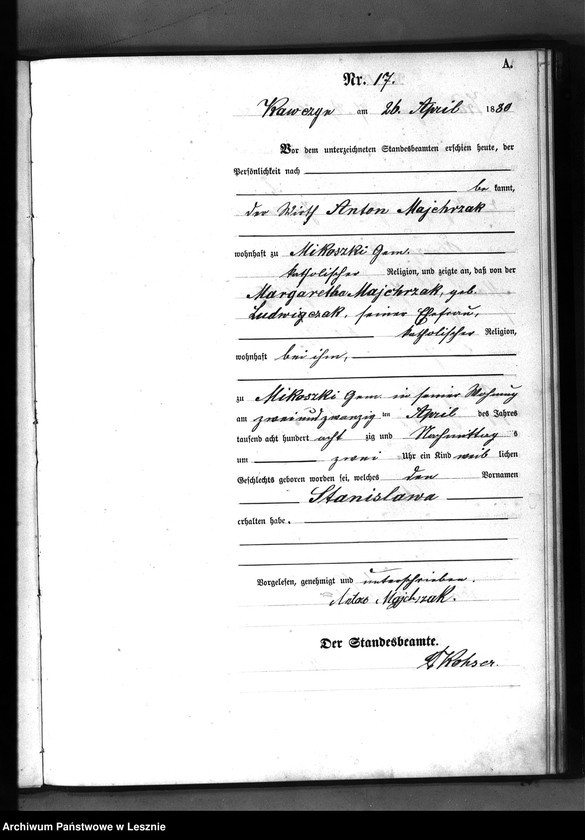 A.
Nr. 17.
Kawczyn am 26. April 1880
Vor dem unterzeichneten Standesbeamten erschien heute, der
Persönlichkeit nach
be kannt,
der Wirth Anton Majchrzak
wohnhaft zu Mikoszki Gem.
katholischer Religion, und zeigte an, daß von der
Margaretha Majchrzak, geb.
Ludwigczak, seiner Ehefrau,
katholischer Religion,
wohnhaft bei ihm,
zu Mikoszki Gem. in seiner Wohnung
am zweiundzwanzig ten April des Jahres
tausend acht hundert acht zig und Nachmittag s
um zwei Uhr ein Kind weib lichen
Geschlechts geboren worden sei, welches den Vornamen
Stanislawa
erhalten habe.
Vorgelesen, genehmigt und unterschrieben.
Anton Majchrzak.
Der Standesbeamte.
Kohser.
Archiwum Państwowe w Lesznie